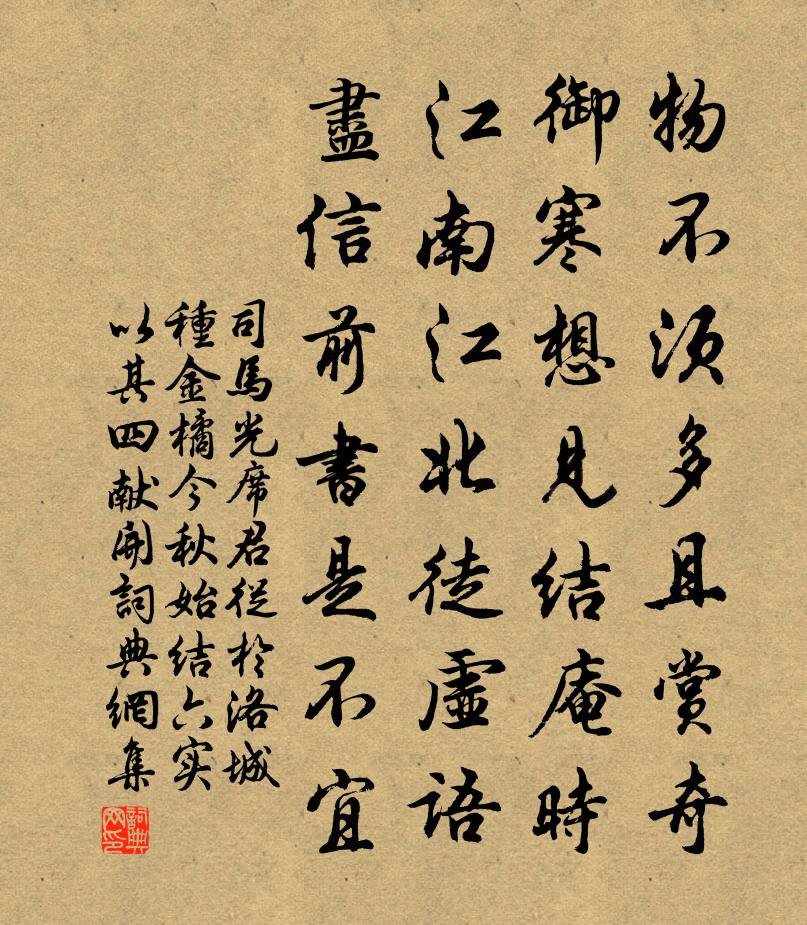 物不須多且賞奇
御寒想見結庵時
江南江北徒虛語
盡信前書是不宜
司馬光席君從於洛城
種金橘今秋始結六实
以其四献開詞典網集
詞典网印